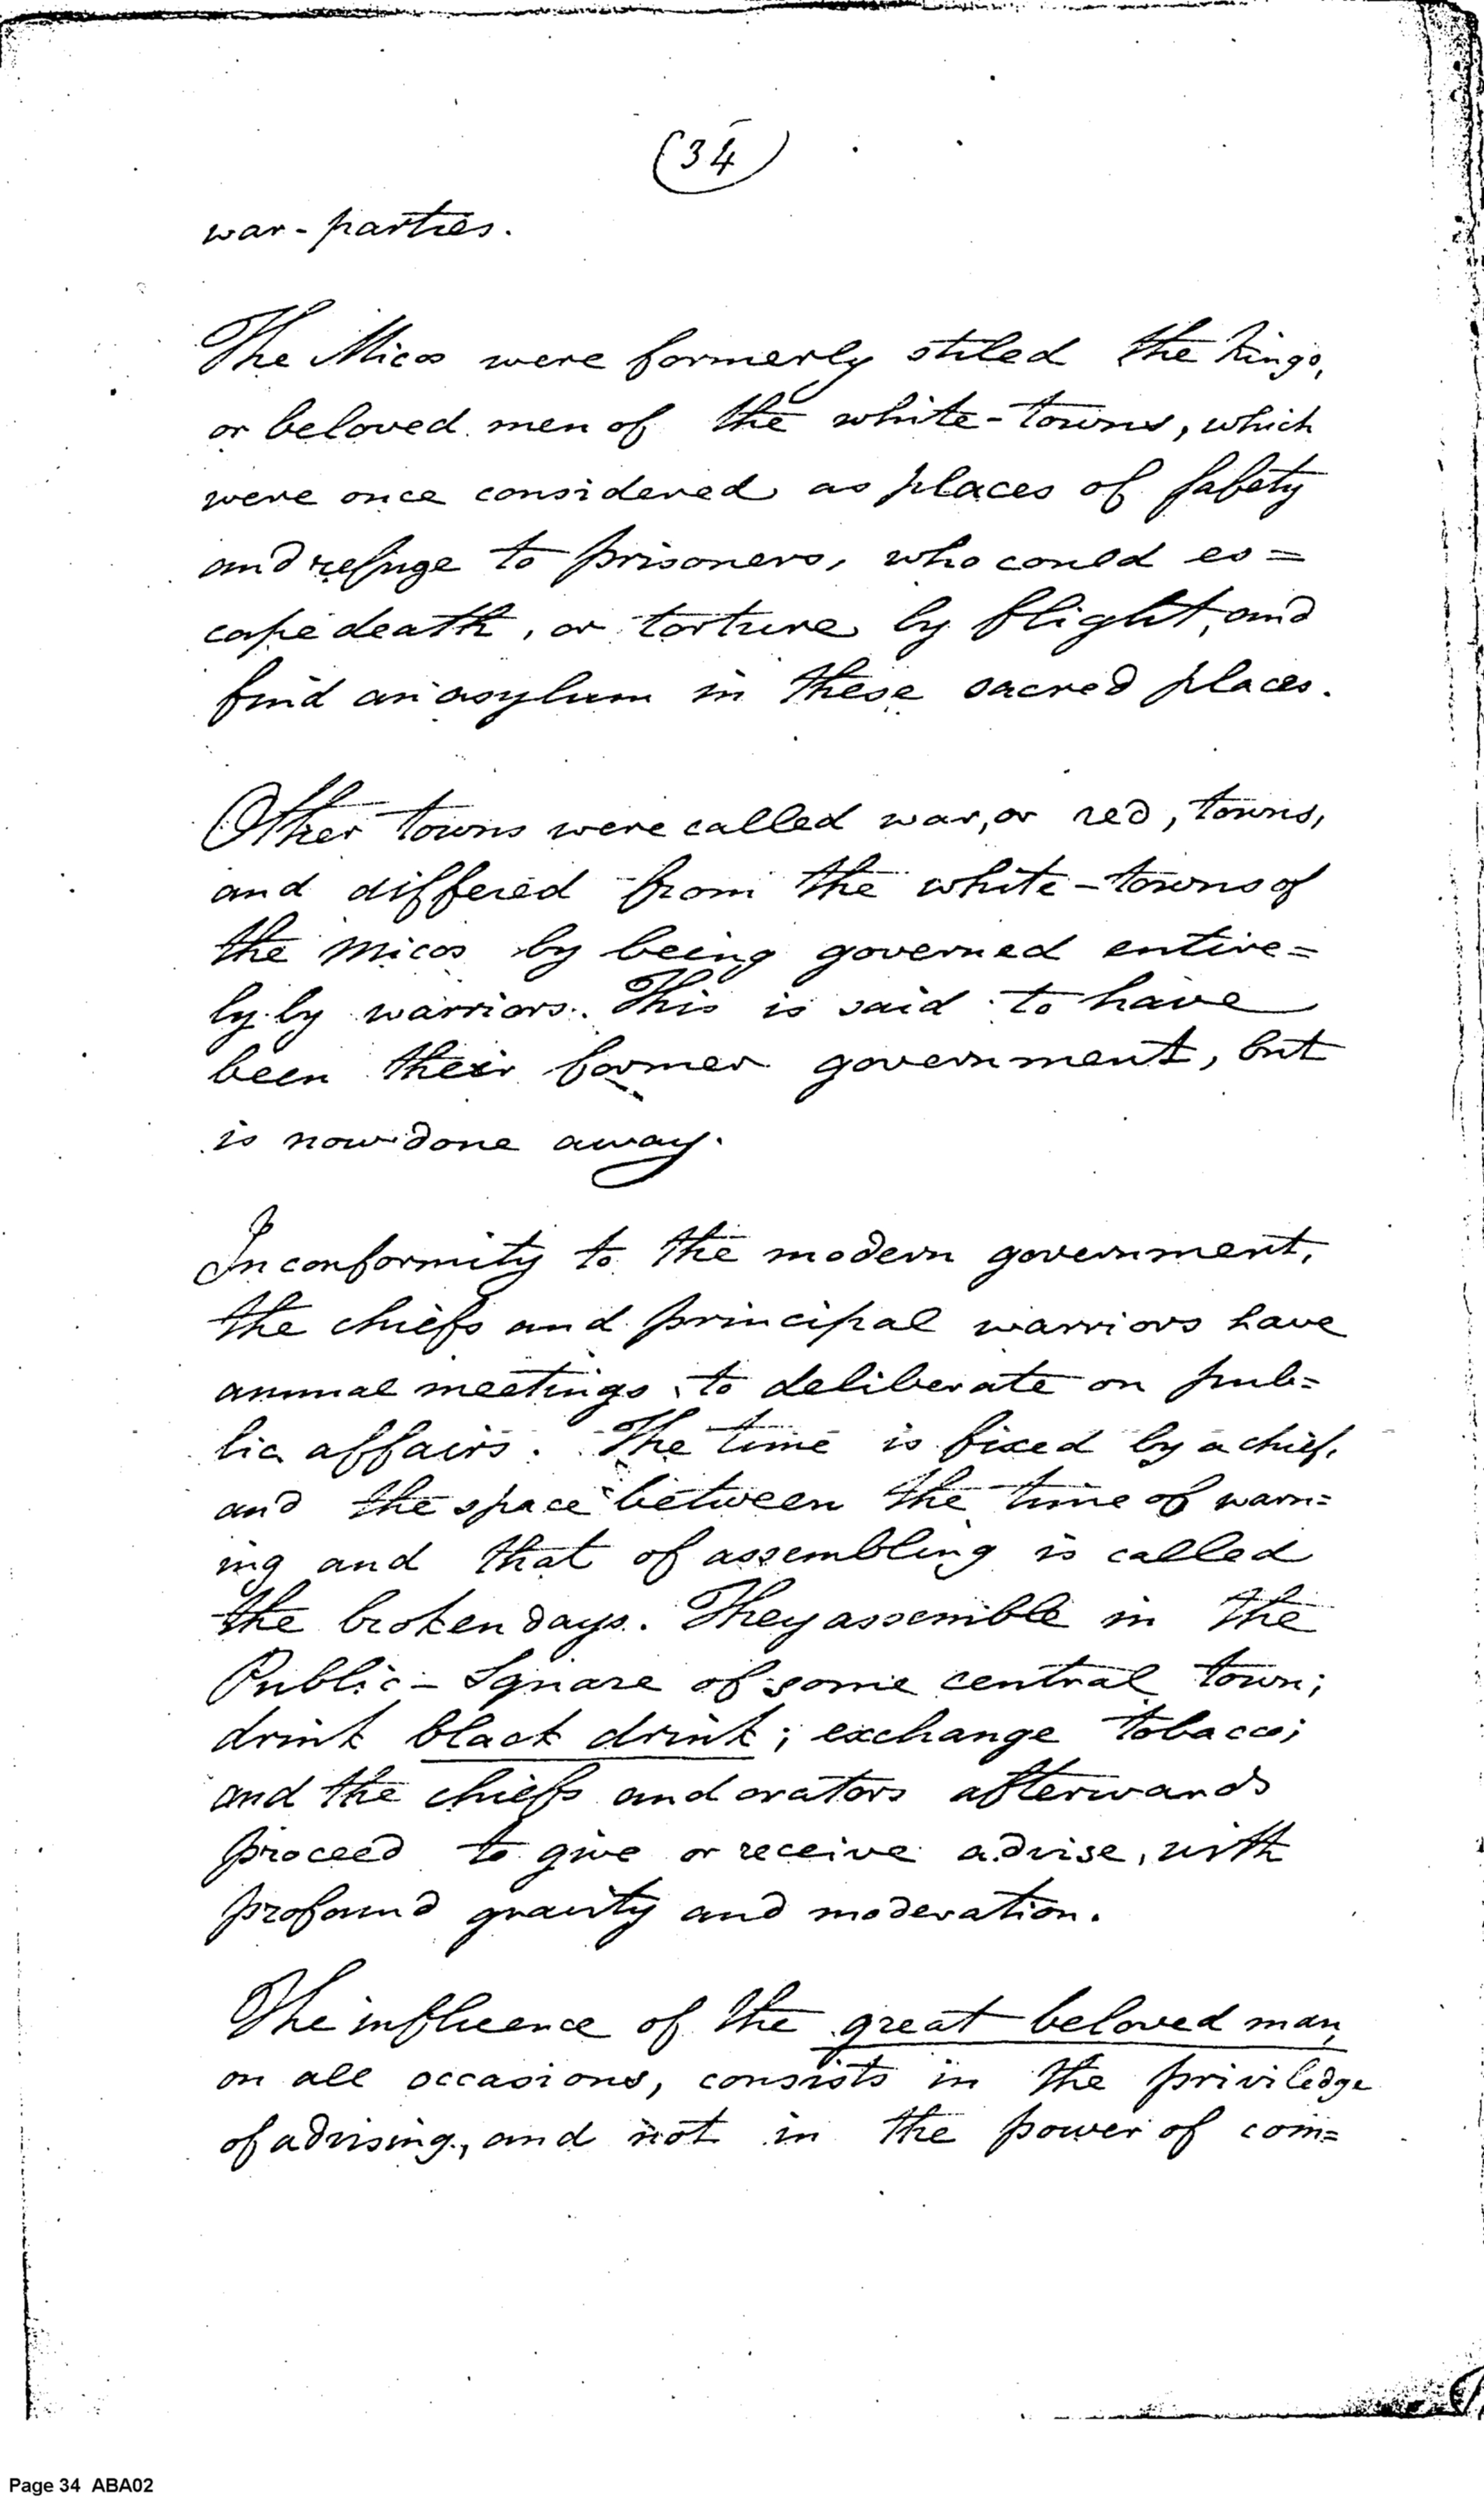 (34)
war-parties.
The Micos were formerly stiled the kings,
or beloved men of the white-towns, which
were once considered as places of safety
and refuge to prisoners, who could es=
cape death, or torture by flight, and
find an asylum in these sacred places.
Other towns were called war, or red, towns,
and differed from the white-towns of
the micos by being governed entire=
ly by warriors. This is said to have
been their former government, but
is now done away.
In conformity to the modern government,
the chiefs and principal warriors have
annual meetings to deliberate on pub=
lic affairs. The time is fixed by a chief,
and the space between the time of warn=
ing and that of assembling is called
the broken days. They assemble in the
Public-Square of some central town;
drink black drink; exchange tobacco;
and the chiefs and orators afterwards
proceed to give or receive advise, with
profound gravity and moderation.
The influence of the great beloved man,
on all occasions, consists in the priviledge
of advising, and not in the power of com=
Page 34 ABA02